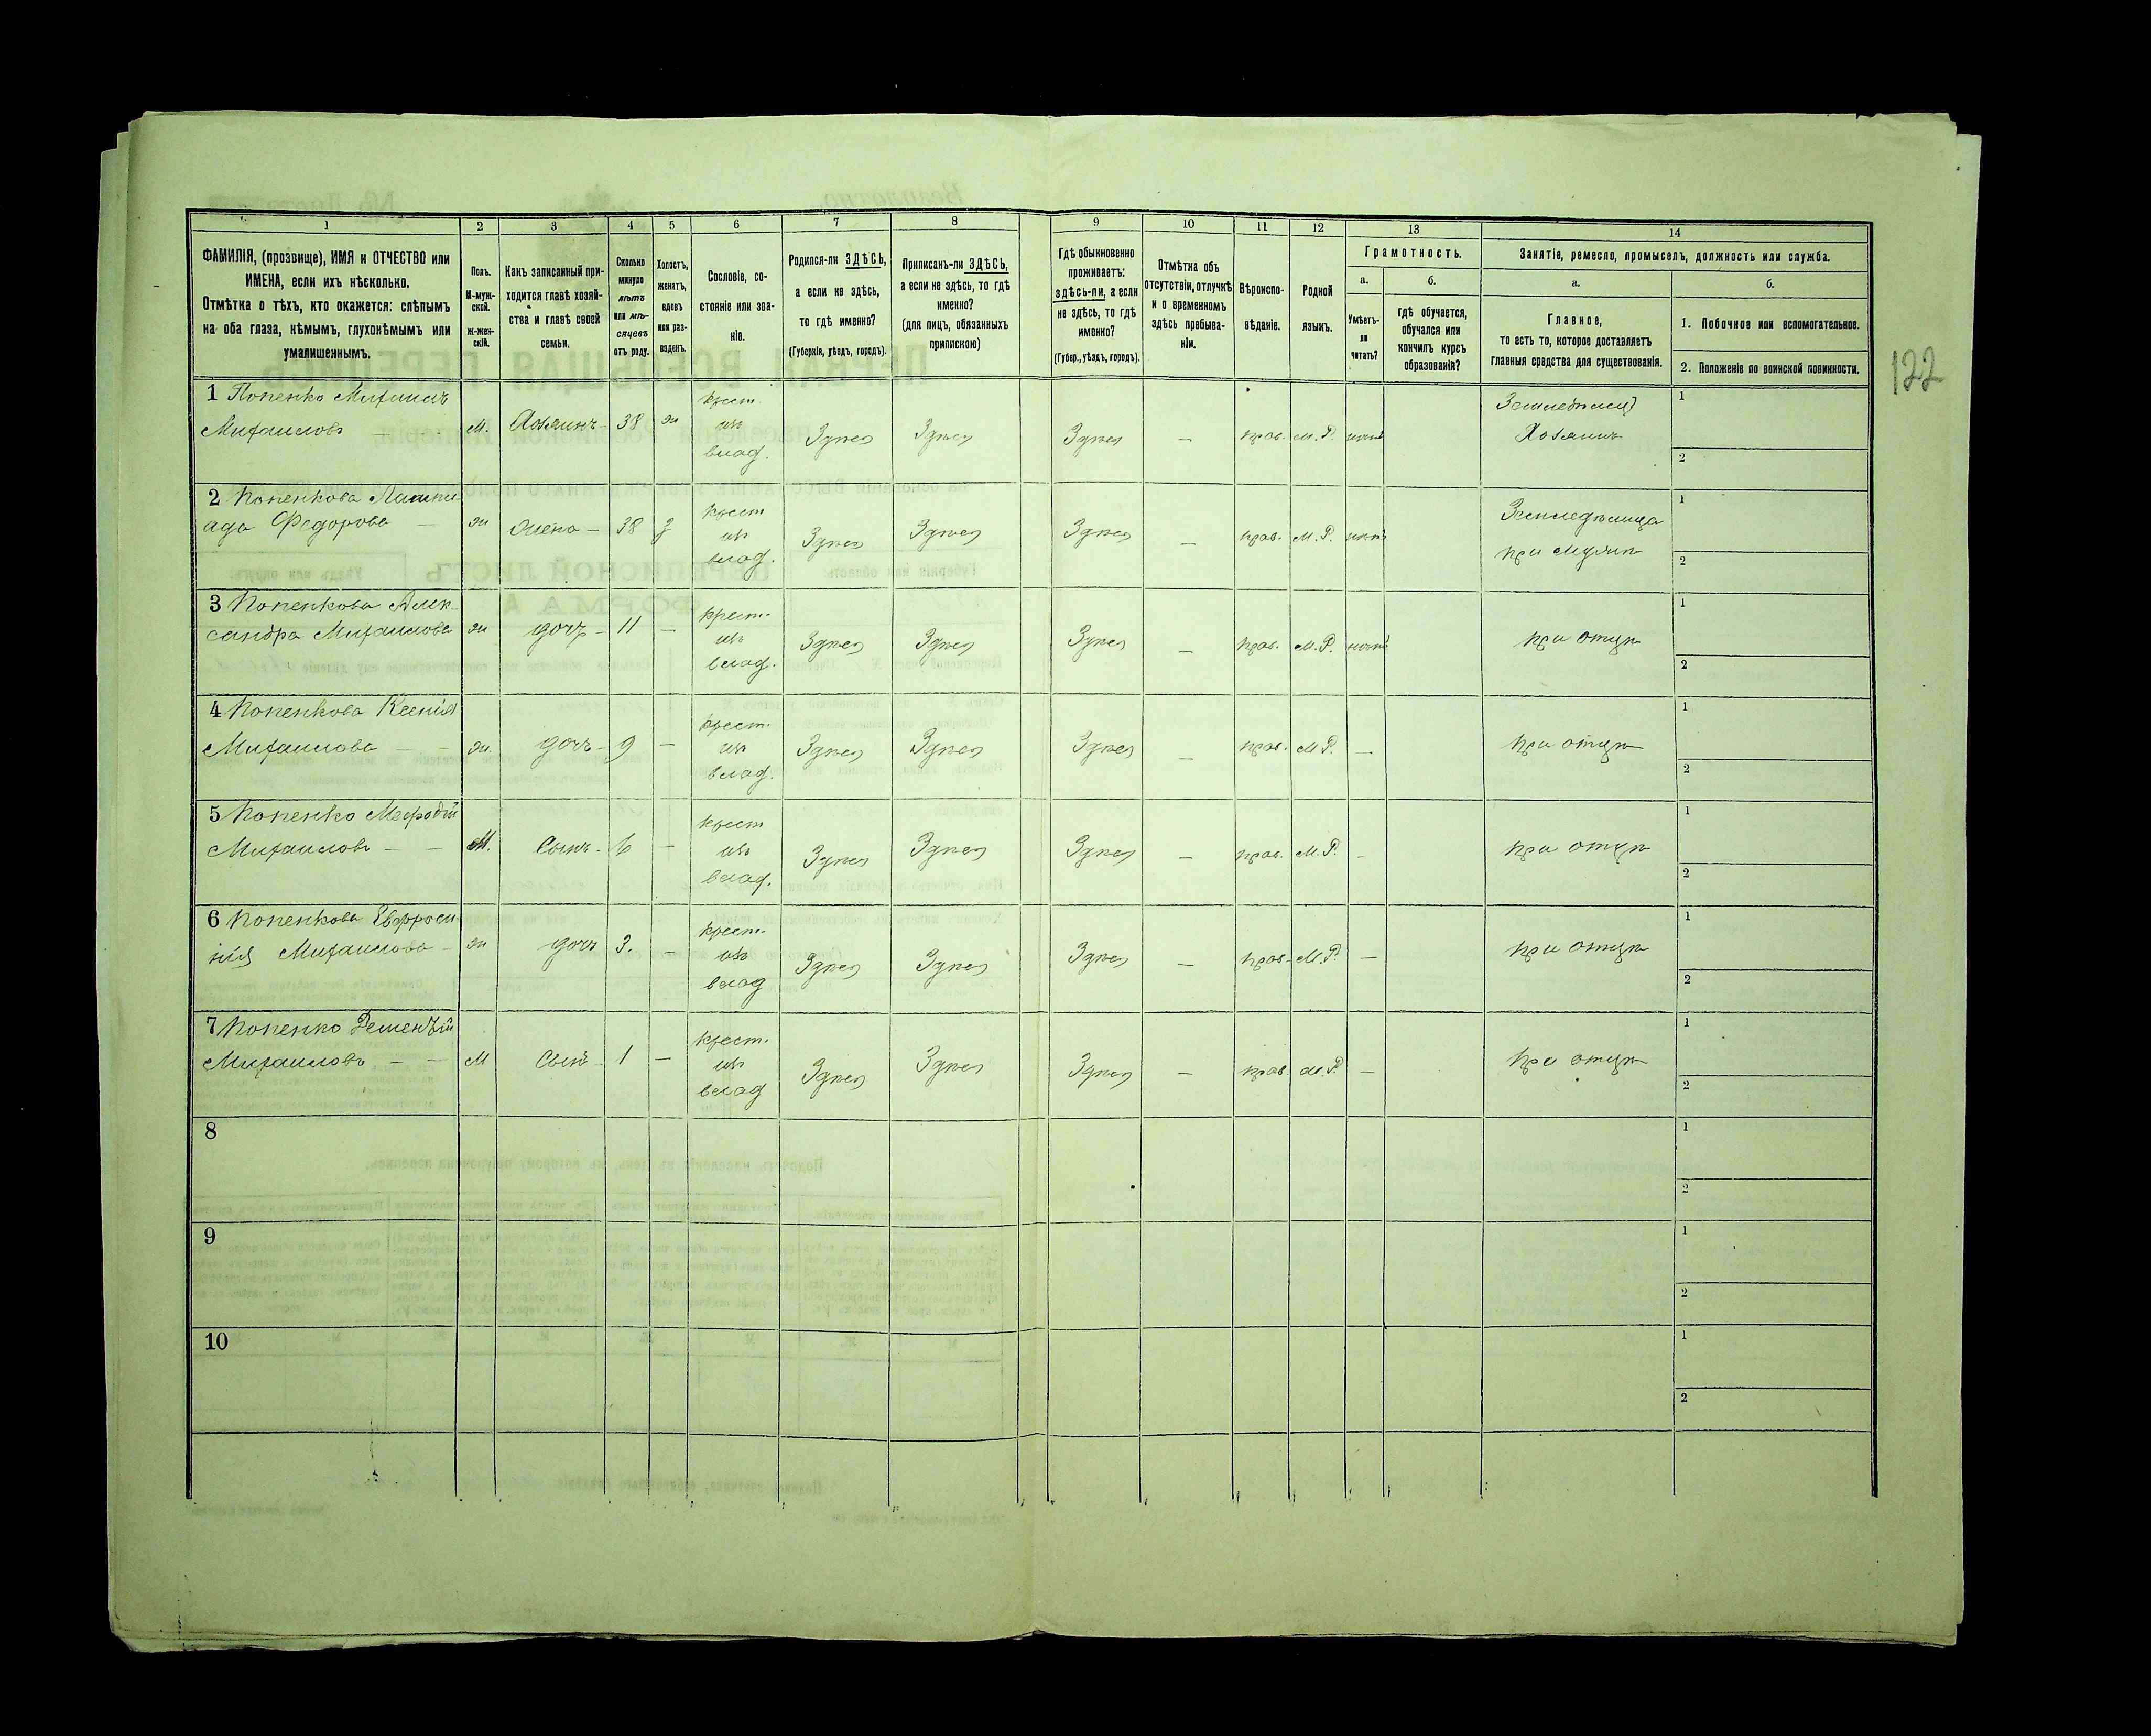 1
2
3
4
5
6
7
8
9
10
11
12
13
14
ФАМИЛІЯ, (прозвище), ИМЯ и ОТЧЕСТВО или
ИМЕНА, если ихъ нѣсколько.
Отмѣтка о тѣхъ, кто окажется: слѣпымъ
на оба глаза, нѣмымъ, глухонѣмымъ или
умалишеннымъ.
Полъ.
М-муж-
ской.
Ж-жен-
скій.
Какъ записанный при-
ходится главѣ хозяй-
ства и главѣ своей
семьи.
Сколько
минуло
лѣтъ
или мѣ-
сяцевъ
отъ роду.
Холостъ,
женатъ,
вдовъ
или раз-
веденъ.
Сословіе, со-
стояніе или зва-
ніе.
Родился-ли ЗДѢСЬ,
а если не здѣсь,
то гдѣ именно?
(Губернія, уѣздъ, городъ).
Приписанъ-ли ЗДѢСЬ,
а если не здѣсь, то гдѣ
именно?
(для лицъ, обязанныхъ
припискою)
Гдѣ обыкновенно
проживаетъ:
здѣсь-ли, а если
не здѣсь, то гдѣ
именно?
(Губер., уѣздъ, городъ).
Отмѣтка объ
отсутствіи, отлучкѣ
и о временномъ
здѣсь пребыва-
ніи.
Вѣроиспо-
вѣданіе.
Родной
языкъ.
Грамотность.
а.
Умѣетъ-
ли
читать?
б.
гдѣ обучается,
обучался или
кончилъ курсъ
образованія?
Занятіе, ремесло, промыселъ, должность или служба.
а.
Главное,
то есть то, которое доставляетъ
главныя средства для существованія.
б.
1. Побочное или вспомогательное.
2. Положеніе по воинской повинности.
122
1 Попенко Михаилъ
Михаиловъ — М. Хозяинъ - 38 ж
крест.
изъ
влад.
Здѣсь Здѣсь Здѣсь — прав. М.Р. нѣтъ
Земледѣлецъ
Хозяинъ
1
2
2 Попенкова Лампи
ада Федорова — ж жена - 38 з
крест
изъ
влад.
Здѣсь Здѣсь Здѣсь — прав. М.Р. нѣтъ
Земледѣлица
при мужѣ
1
2
3 Попенкова Алек-
сандра Михаилова ж дочь - 11 —
крест.
изъ
влад.
Здѣсь Здѣсь Здѣсь — прав. М.Р. нѣтъ
при отцѣ
1
2
4 Попенкова Ксенія
Михаилова — — ж. дочь - 9 —
крест.
изъ
влад.
Здѣсь Здѣсь Здѣсь — прав. М.Р. —
при отцѣ
1
2
5 Попенко Мефодій
Михаиловъ — — М. Сынъ - 6 —
крест
изъ
влад.
Здѣсь Здѣсь Здѣсь — прав. М.Р. —
при отцѣ
1
2
6 Попенкова Евфроси
нія Михаилова — ж дочь 3. —
крест.
изъ
влад
Здѣсь Здѣсь Здѣсь — прав. М.Р. —
при отцѣ
1
2
7 Попенко
Михаиловъ — — М Сынъ 1 —
крест.
изъ
влад
Здѣсь Здѣсь Здѣсь — прав. М.Р. —
при отцѣ
1
2
8
1
2
9
1
2
10
1
2